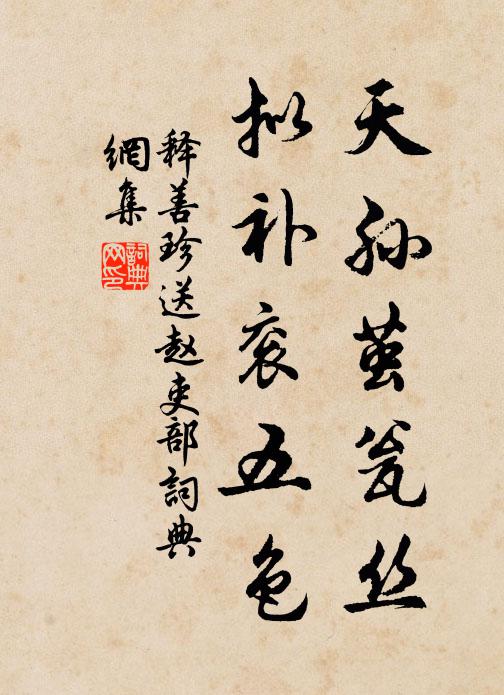 天孙茧瓮丝
拟补衮五色
释善珍送赵吏部詞典
網集
詞典
网印